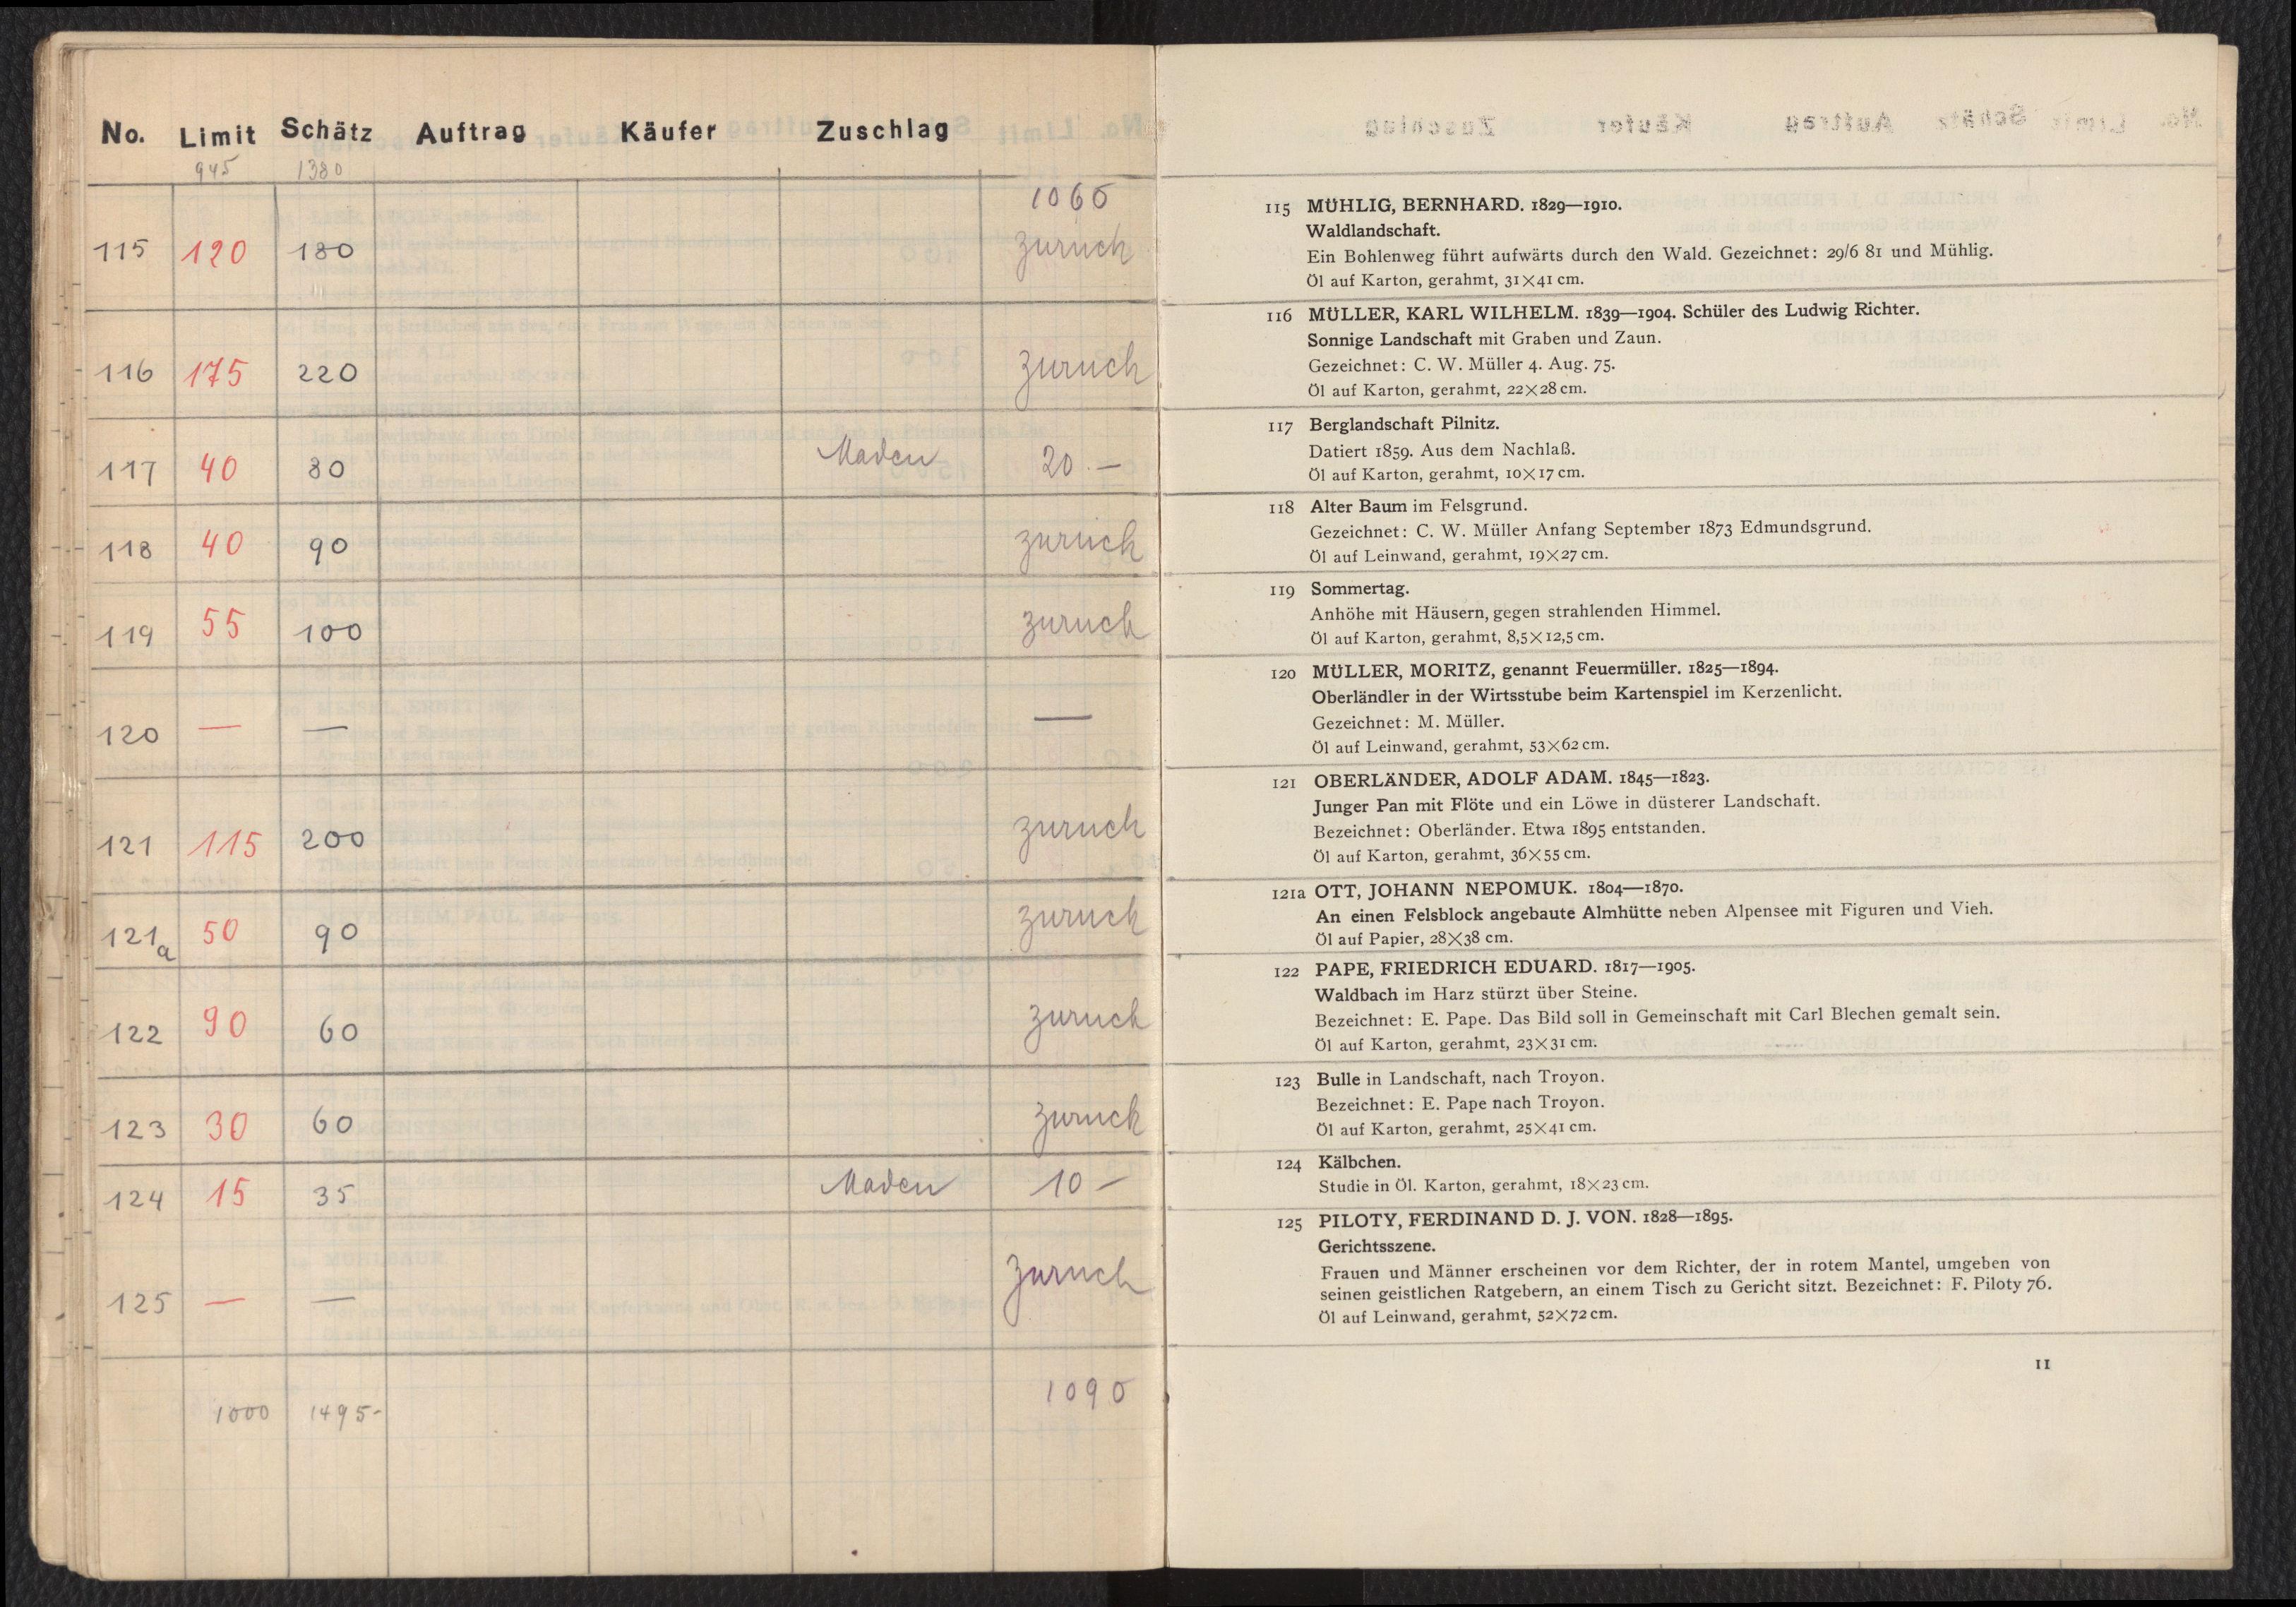 No. Limit Schätz Auftrag Käufer Zuschlag
945 1380
1060
115 120 180 zurück
116 175 220 zurück
117 40 80 Maden 20.—
118 40 90 zurück
119 55 100 zurück
120 — — —
121 115 200 zurück
121a 50 90 zurück
122 90 60 zurück
123 30 60 zurück
124 15 35 Maden 10 –
125 — — zurück
1000 1495- 1090
115 MÜHLIG, BERNHARD. 1829—1910.
Waldlandschaft.
Ein Bohlenweg führt aufwärts durch den Wald. Gezeichnet: 29/6 81 und Mühlig.
Öl auf Karton, gerahmt, 31×41 cm.
116 MÜLLER, KARL WILHELM. 1839—1904. Schüler des Ludwig Richter.
Sonnige Landschaft mit Graben und Zaun.
Gezeichnet: C. W. Müller 4. Aug. 75.
Öl auf Karton, gerahmt, 22×28 cm.
117 Berglandschaft Pilnitz.
Datiert 1859. Aus dem Nachlaß.
Öl auf Karton, gerahmt, 10×17 cm.
118 Alter Baum im Felsgrund.
Gezeichnet: C. W. Müller Anfang September 1873 Edmundsgrund.
Öl auf Leinwand, gerahmt, 19×27 cm.
119 Sommertag.
Anhöhe mit Häusern, gegen strahlenden Himmel.
Öl auf Karton, gerahmt, 8,5×12,5 cm.
120 MÜLLER, MORITZ, genannt Feuermüller. 1825—1894.
Oberländler in der Wirtsstube beim Kartenspiel im Kerzenlicht.
Gezeichnet: M. Müller.
Öl auf Leinwand, gerahmt, 53×62 cm.
121 OBERLÄNDER, ADOLF ADAM. 1845—1823.
Junger Pan mit Flöte und ein Löwe in düsterer Landschaft.
Bezeichnet: Oberländer. Etwa 1895 entstanden.
Öl auf Karton, gerahmt, 36×55 cm.
121a OTT, JOHANN NEPOMUK. 1804—1870.
An einen Felsblock angebaute Almhütte neben Alpensee mit Figuren und Vieh.
Öl auf Papier, 28×38 cm.
122 PAPE, FRIEDRICH EDUARD. 1817—1905.
Waldbach im Harz stürzt über Steine.
Bezeichnet: E. Pape. Das Bild soll in Gemeinschaft mit Carl Blechen gemalt sein.
Öl auf Karton, gerahmt, 23×31 cm.
123 Bulle in Landschaft, nach Troyon.
Bezeichnet: E. Pape nach Troyon.
Öl auf Karton, gerahmt, 25×41 cm.
124 Kälbchen.
Studie in Öl. Karton, gerahmt, 18×23 cm.
125 PILOTY, FERDINAND D. J. VON. 1828—1895.
Gerichtsszene.
Frauen und Männer erscheinen vor dem Richter, der in rotem Mantel, umgeben von
seinen geistlichen Ratgebern, an einem Tisch zu Gericht sitzt. Bezeichnet: F. Piloty 76.
Öl auf Leinwand, gerahmt, 52×72 cm.
11